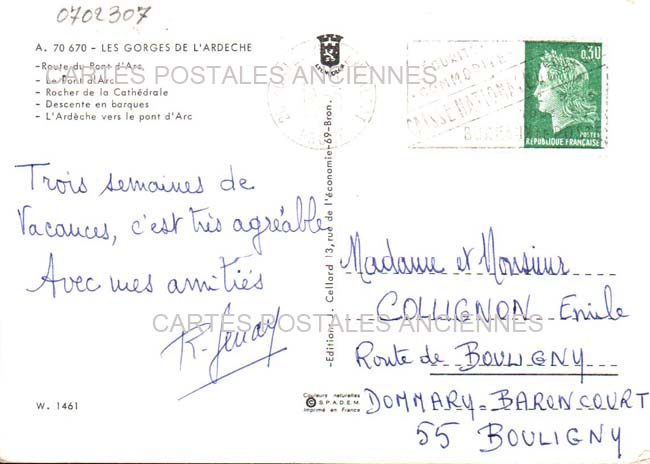 0702307
A. 70 670 - LES GORGES DE L'ARDECHE
-Route du Pont d'Arc
- Le Pont d'Arc
- Rocher de la Cathédrale
- Descente en barques
- L'Ardèche vers le pont d'Arc
CARTES POSTALES ANCIENNES
0,30
POSTES
REPUBLIQUE FRANÇAISE
Trois semaines de
Vacances, c'est très agréable
Avec mes amitiés
CARTES POSTALES ANCIENNES
-Edition J. Cellard 13, rue de l'économie-69-Bron.
Madame et Monsieur
COLLIGNON Emile
Route de BOULIGNY
DOMMARY-BARONCOURT
55 BOULIGNY
W. 1461
Couleurs naturelles
© S.P.A.D.E.M.
Imprimé en France